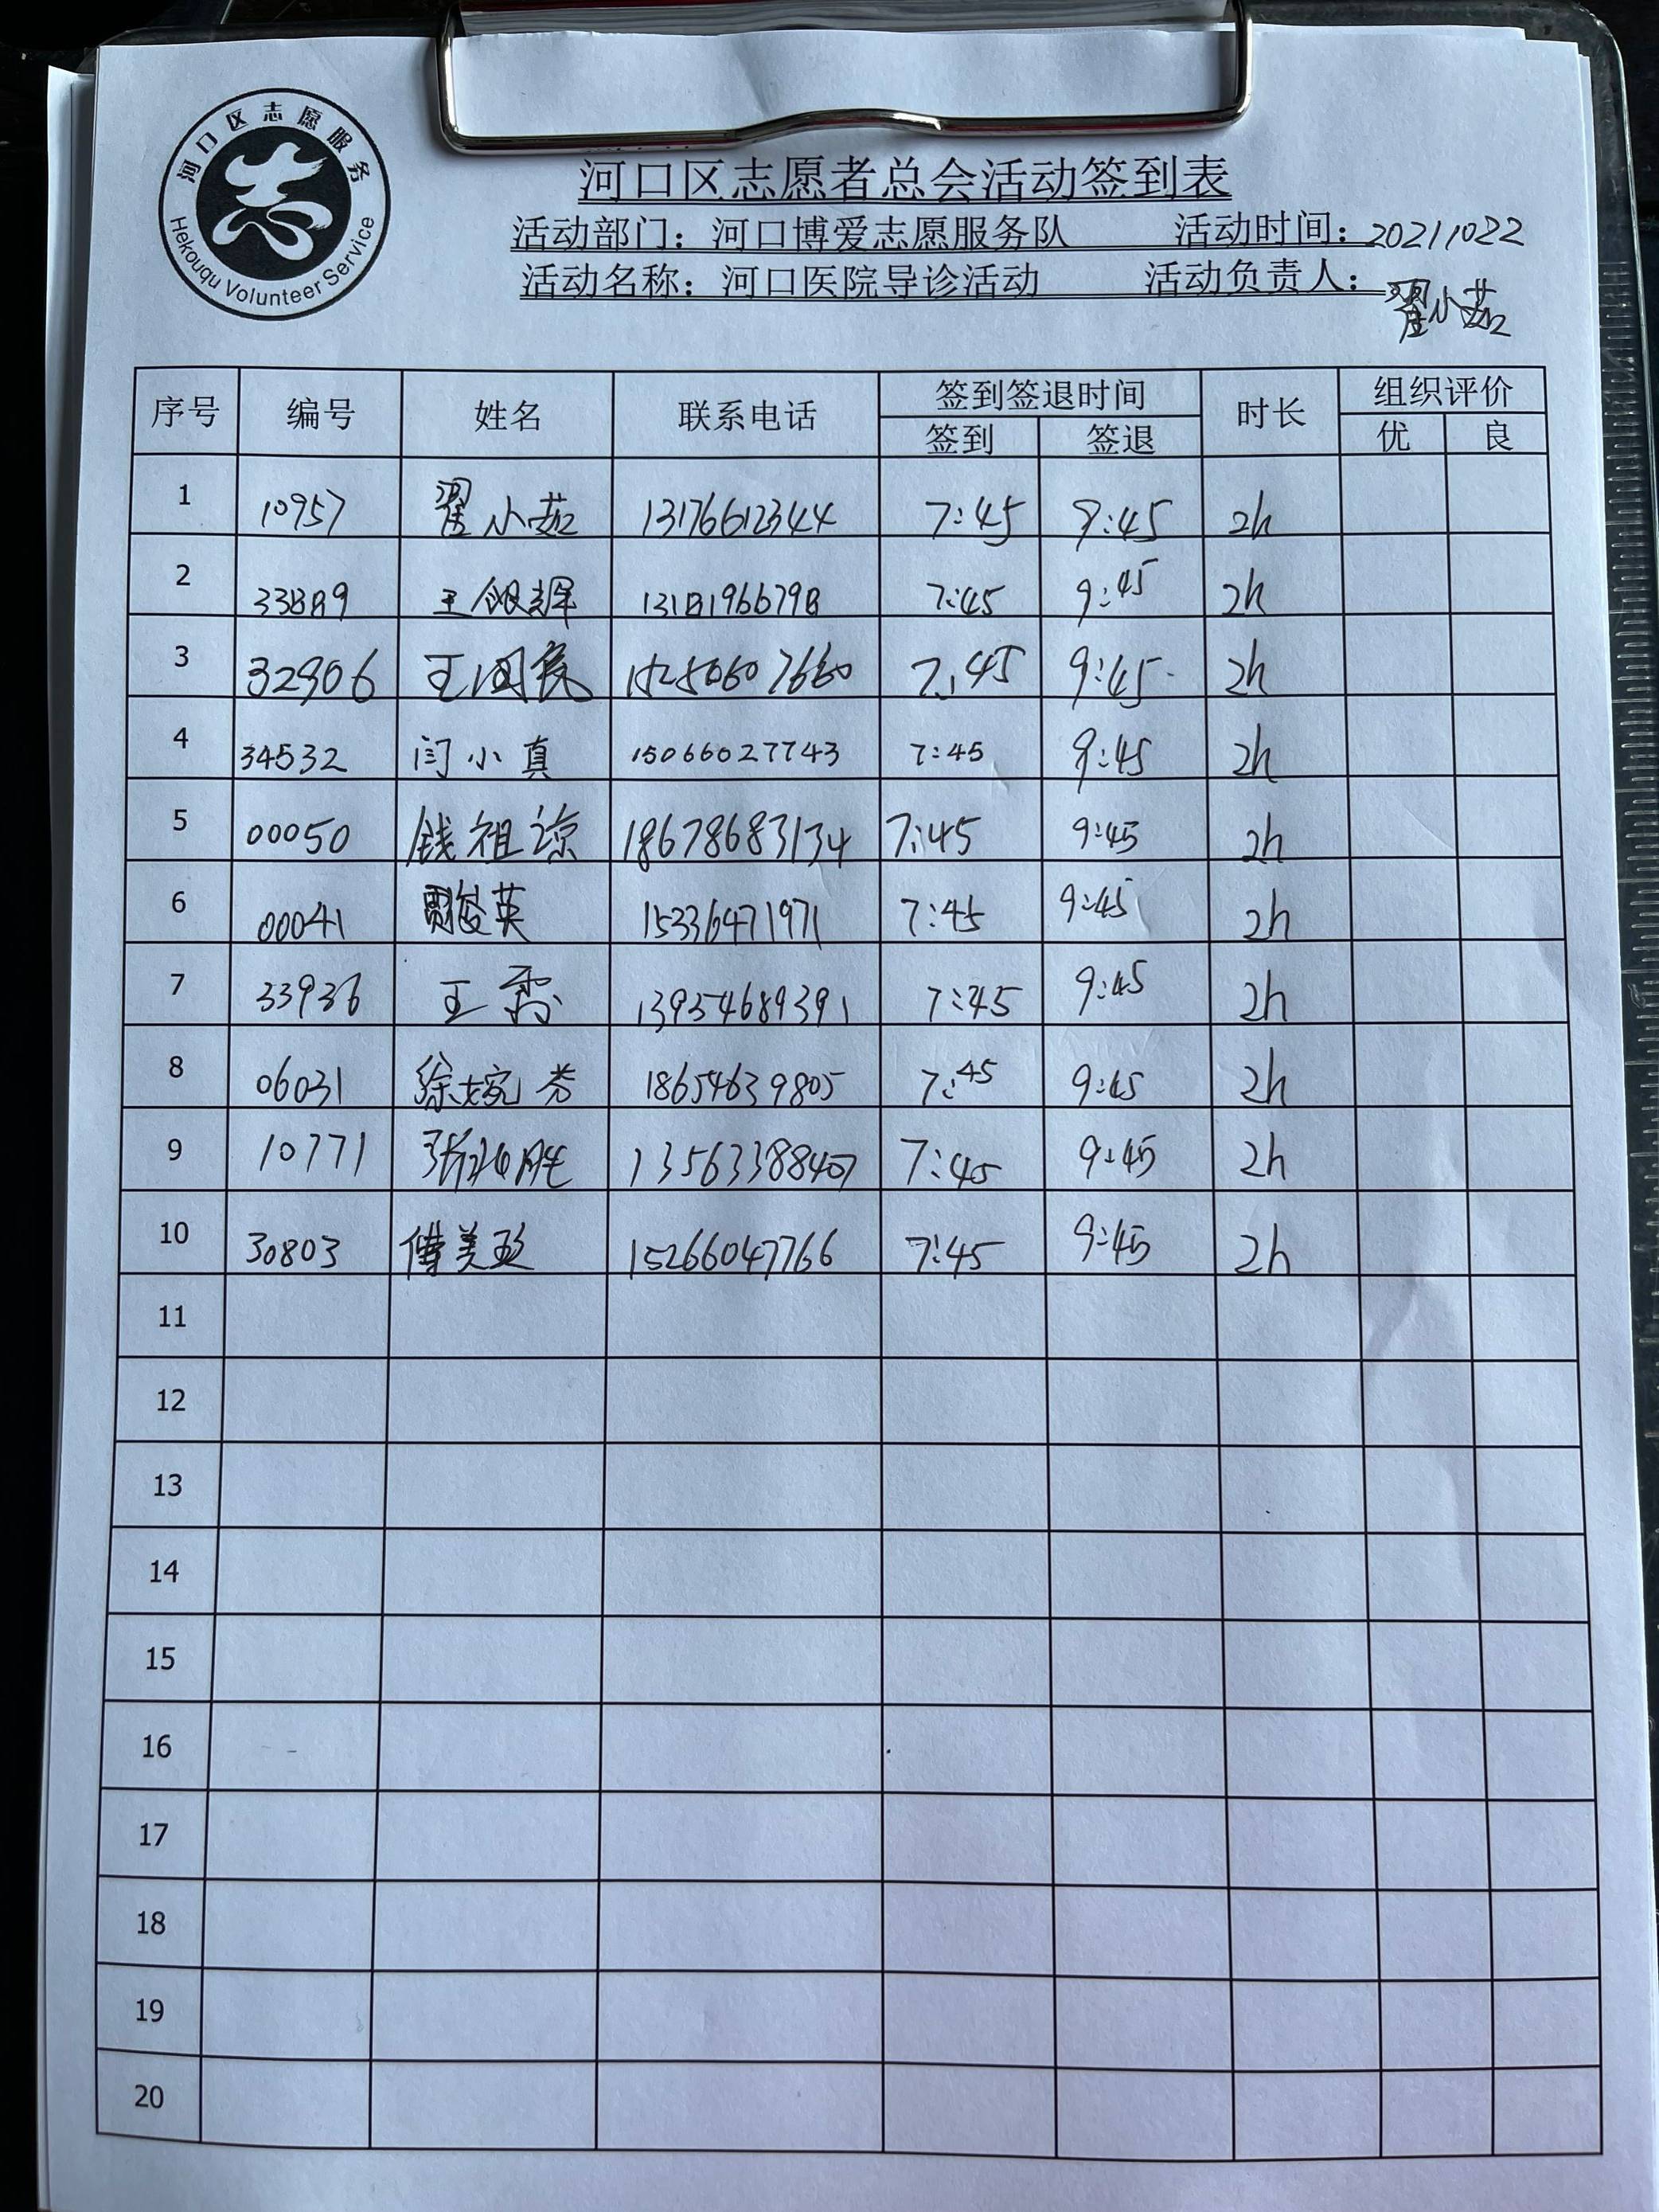 河口区志愿服务
Hekouqu Volunteer Service
河口区志愿者总会活动签到表
活动部门：河口博爱志愿服务队 活动时间：20211022
活动名称：河口医院导诊活动 活动负责人：翟小茹
序号 编号 姓名 联系电话 签到签退时间 时长 组织评价
签到 签退 优 良
1 10957 翟小茹 13176612344 7:45 9:45 2h
2 33889 王 13181966798 7:45 9:45 2h
3 32906 王国良 15256607660 7:45 9:45 2h
4 34532 闫小真 15066027743 7:45 9:45 2h
5 00050 钱祖谅 18678683134 7:45 9:45 2h
6 00041 贾俊英 15336471971 7:45 9:45 2h
7 33936 王霞 13954689391 7:45 9:45 2h
8 06031 徐婉芬 18654639805 7:45 9:45 2h
9 10771 张 13563388407 7:45 9:45 2h
10 30803 傅美玲 15266047766 7:45 9:45 2h
11
12
13
14
15
16
17
18
19
20